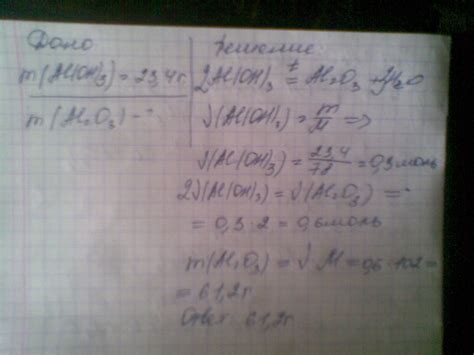 Дано
m(Al(OH)3) = 23,4г
m(Al2O3) -
Решение:
2Al(OH)3 t= Al2O3 + 3H2O
√(Al(OH)3) = m/M =>
√(Al(OH)3) = 23,4/78 = 0,3 моль
2√(Al(OH)3) = √(Al2O3) =
= 0,3 · 2 = 0,6 моль
m(Al2O3) = √ M = 0,6 · 102 =
= 61,2г
Ответ 61,2г